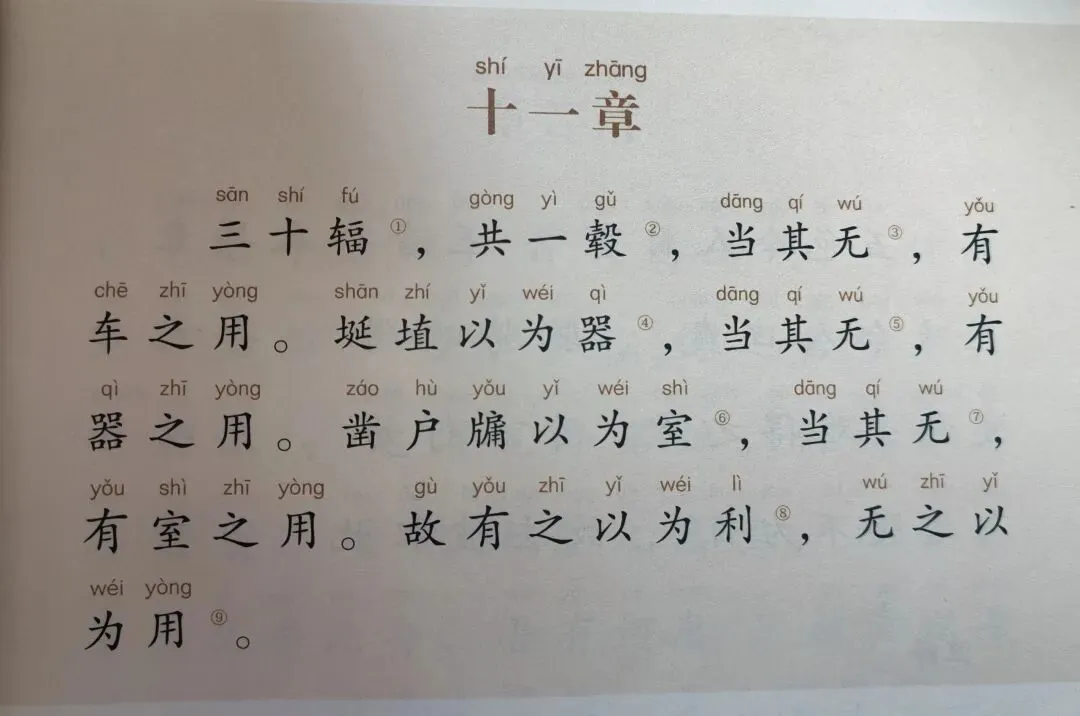 shí yī zhāng
十一章
sān shí fú gòng yì gǔ dāng qí wú yǒu
三十辐①，共一毂②，当其无③，有
chē zhī yòng shān zhí yǐ wéi qì dāng qí wú yǒu
车之用。埏埴以为器④，当其无⑤，有
qì zhī yòng záo hù yǒu yǐ wéi shì dāng qí wú
器之用。凿户牖以为室⑥，当其无⑦，
yǒu shì zhī yòng gù yǒu zhī yǐ wéi lì wú zhī yǐ
有室之用。故有之以为利⑧，无之以
wéi yòng
为用⑨。